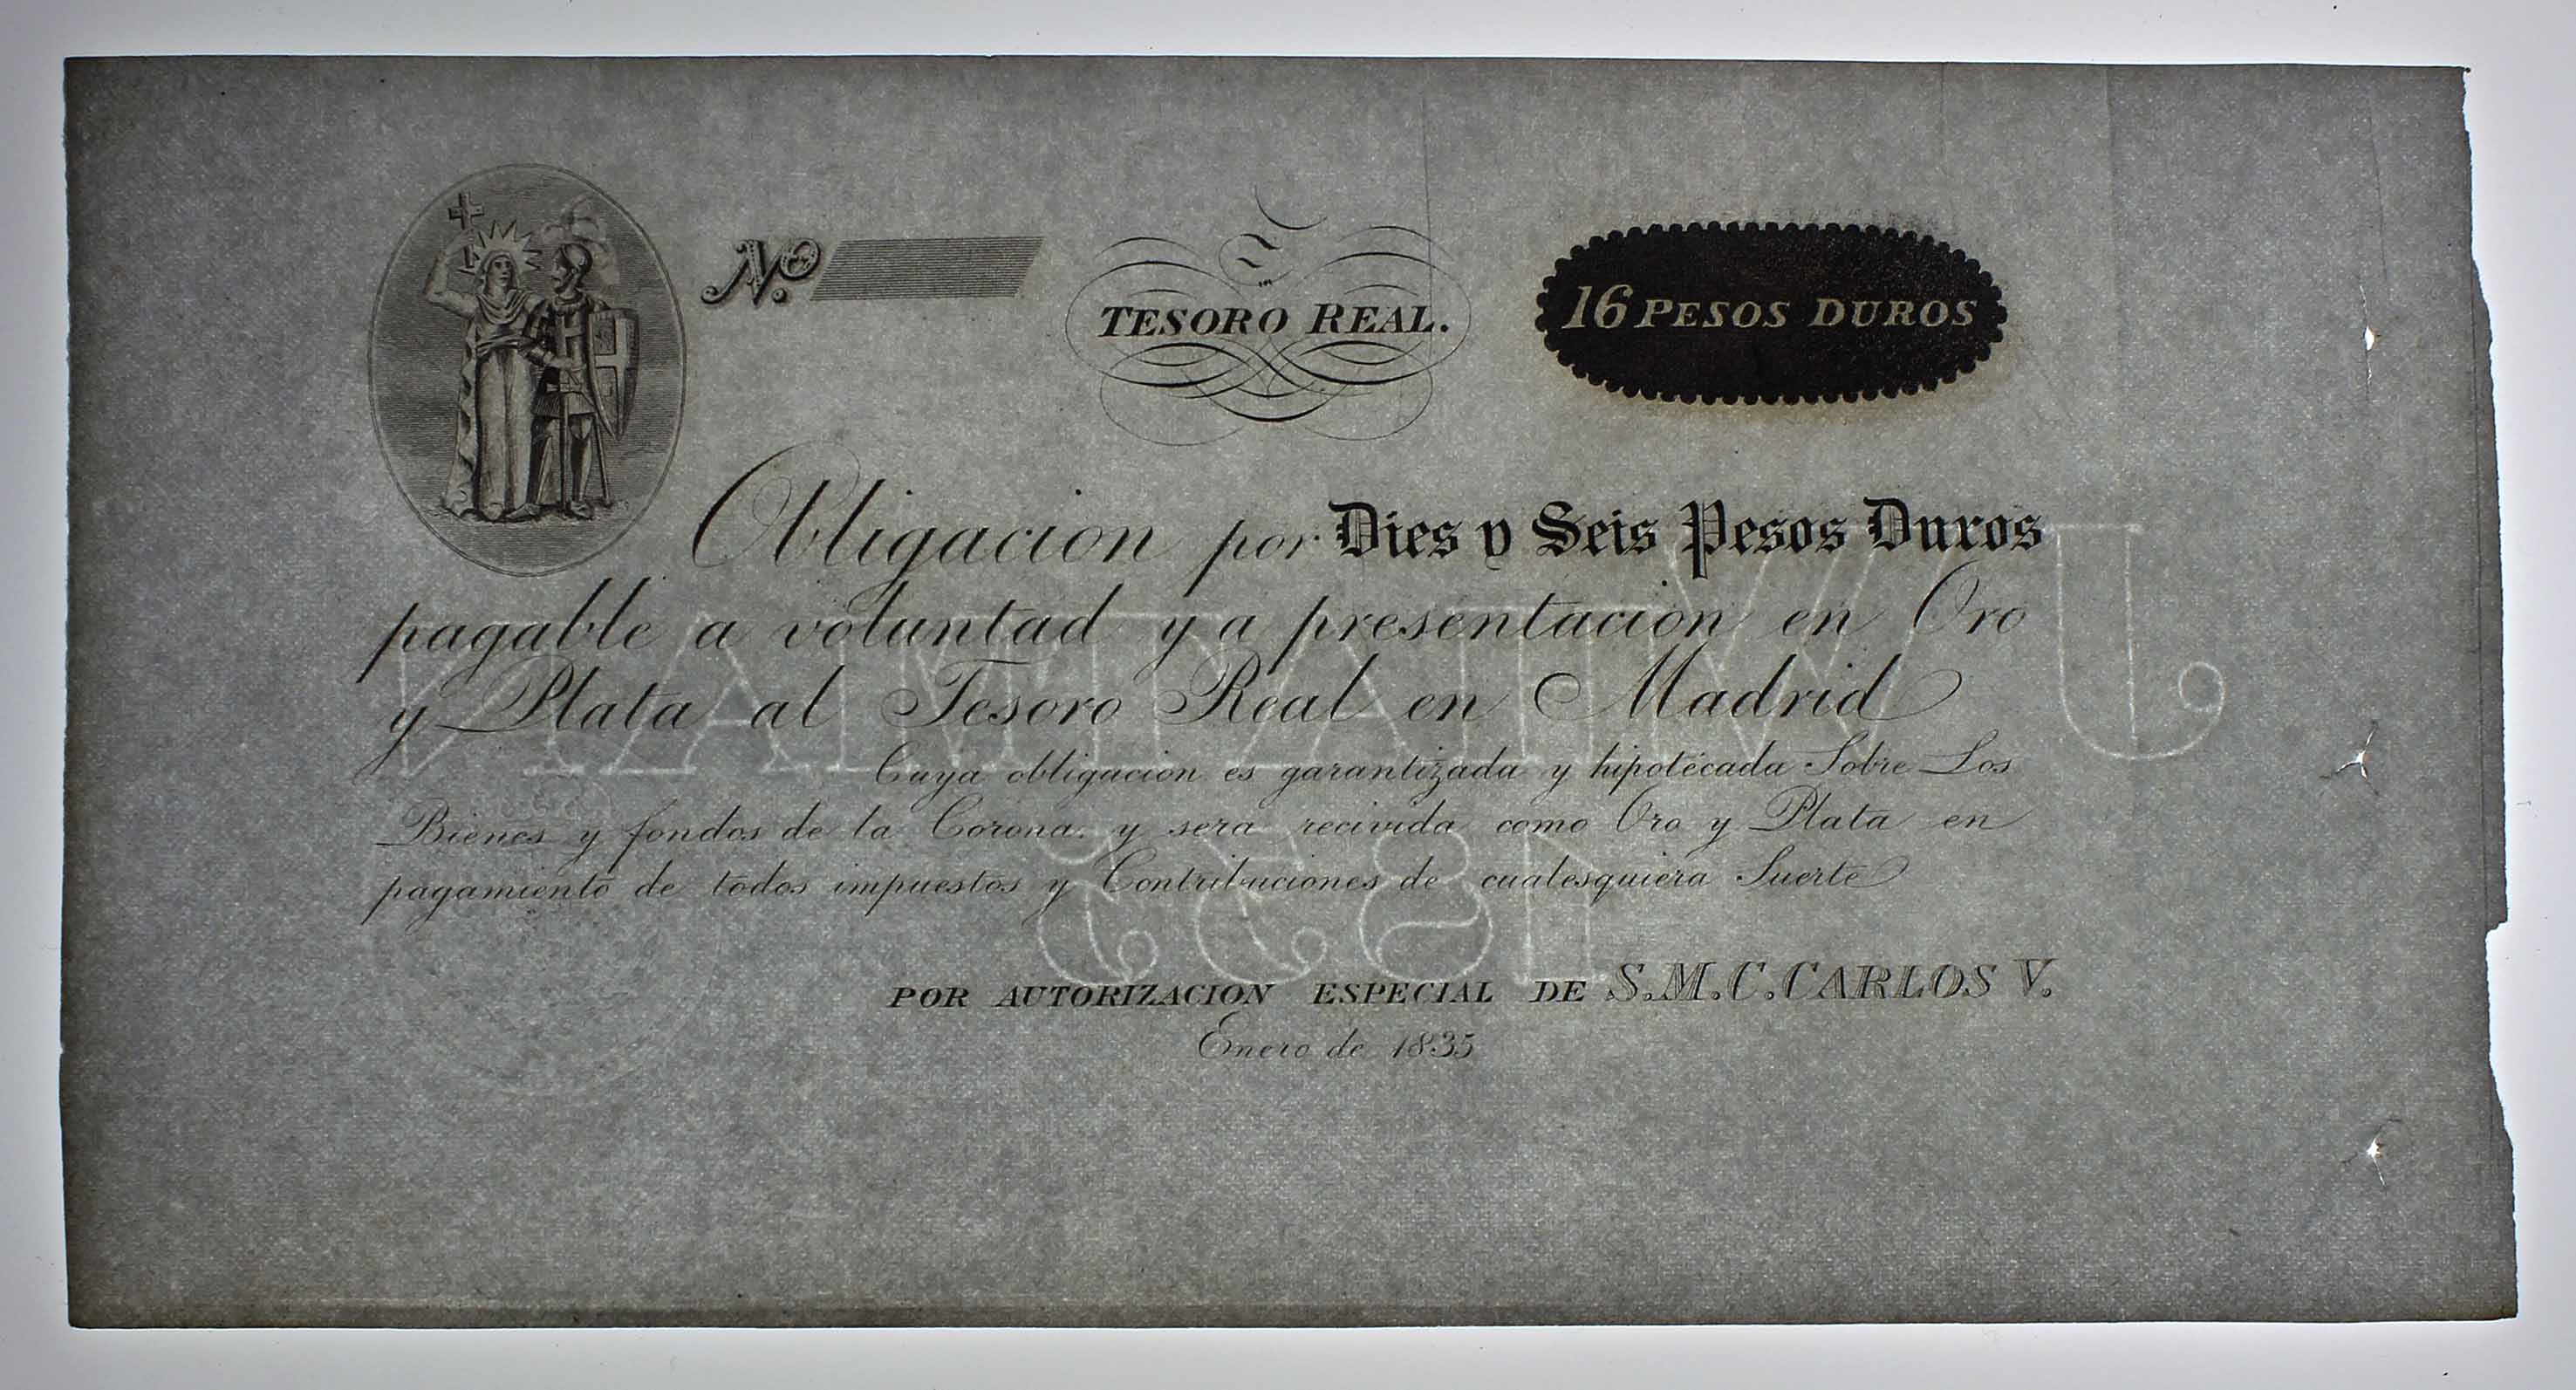 No.
TESORO REAL.
16 PESOS DUROS
Obligacion por Dies y Seis Pesos Duros
pagable a voluntad y a presentacion en Oro
y Plata al Tesoro Real en Madrid
Cuya obligacion es garantizada y hipotécada Sobre Los
Bienes y fondos de la Corona. y sera recivida como Oro y Plata en
pagamiento de todos impuestos y Contribuciones de cualesquiera Suerte
POR AUTORIZACION ESPECIAL DE S.M.C. CARLOS V.
Enero de 1835
J WHATMAN
1833